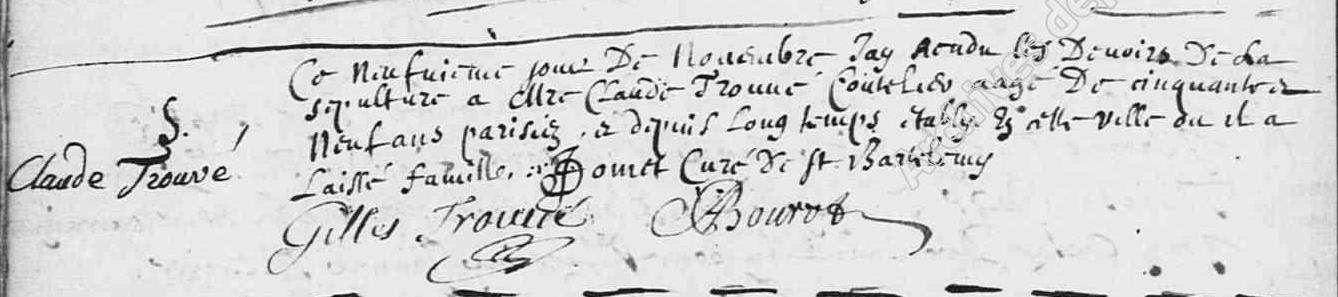 Ce neufvieme jour De Novembre Jay Rendu les Devoirs De La
sepulture a Mre Claude Trouvé Coutelier aagé De cinquante &
Neuf ans parisien, et depuis Long temps étably En cette ville ou il a
S.
Claude Trouvé
Laissé famille. Domet Curé De St. Bartelemy
Gilles Trouvé Bourot